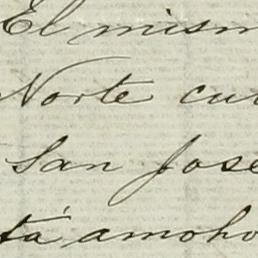 El mism
Norte cu
San José
tá amoho